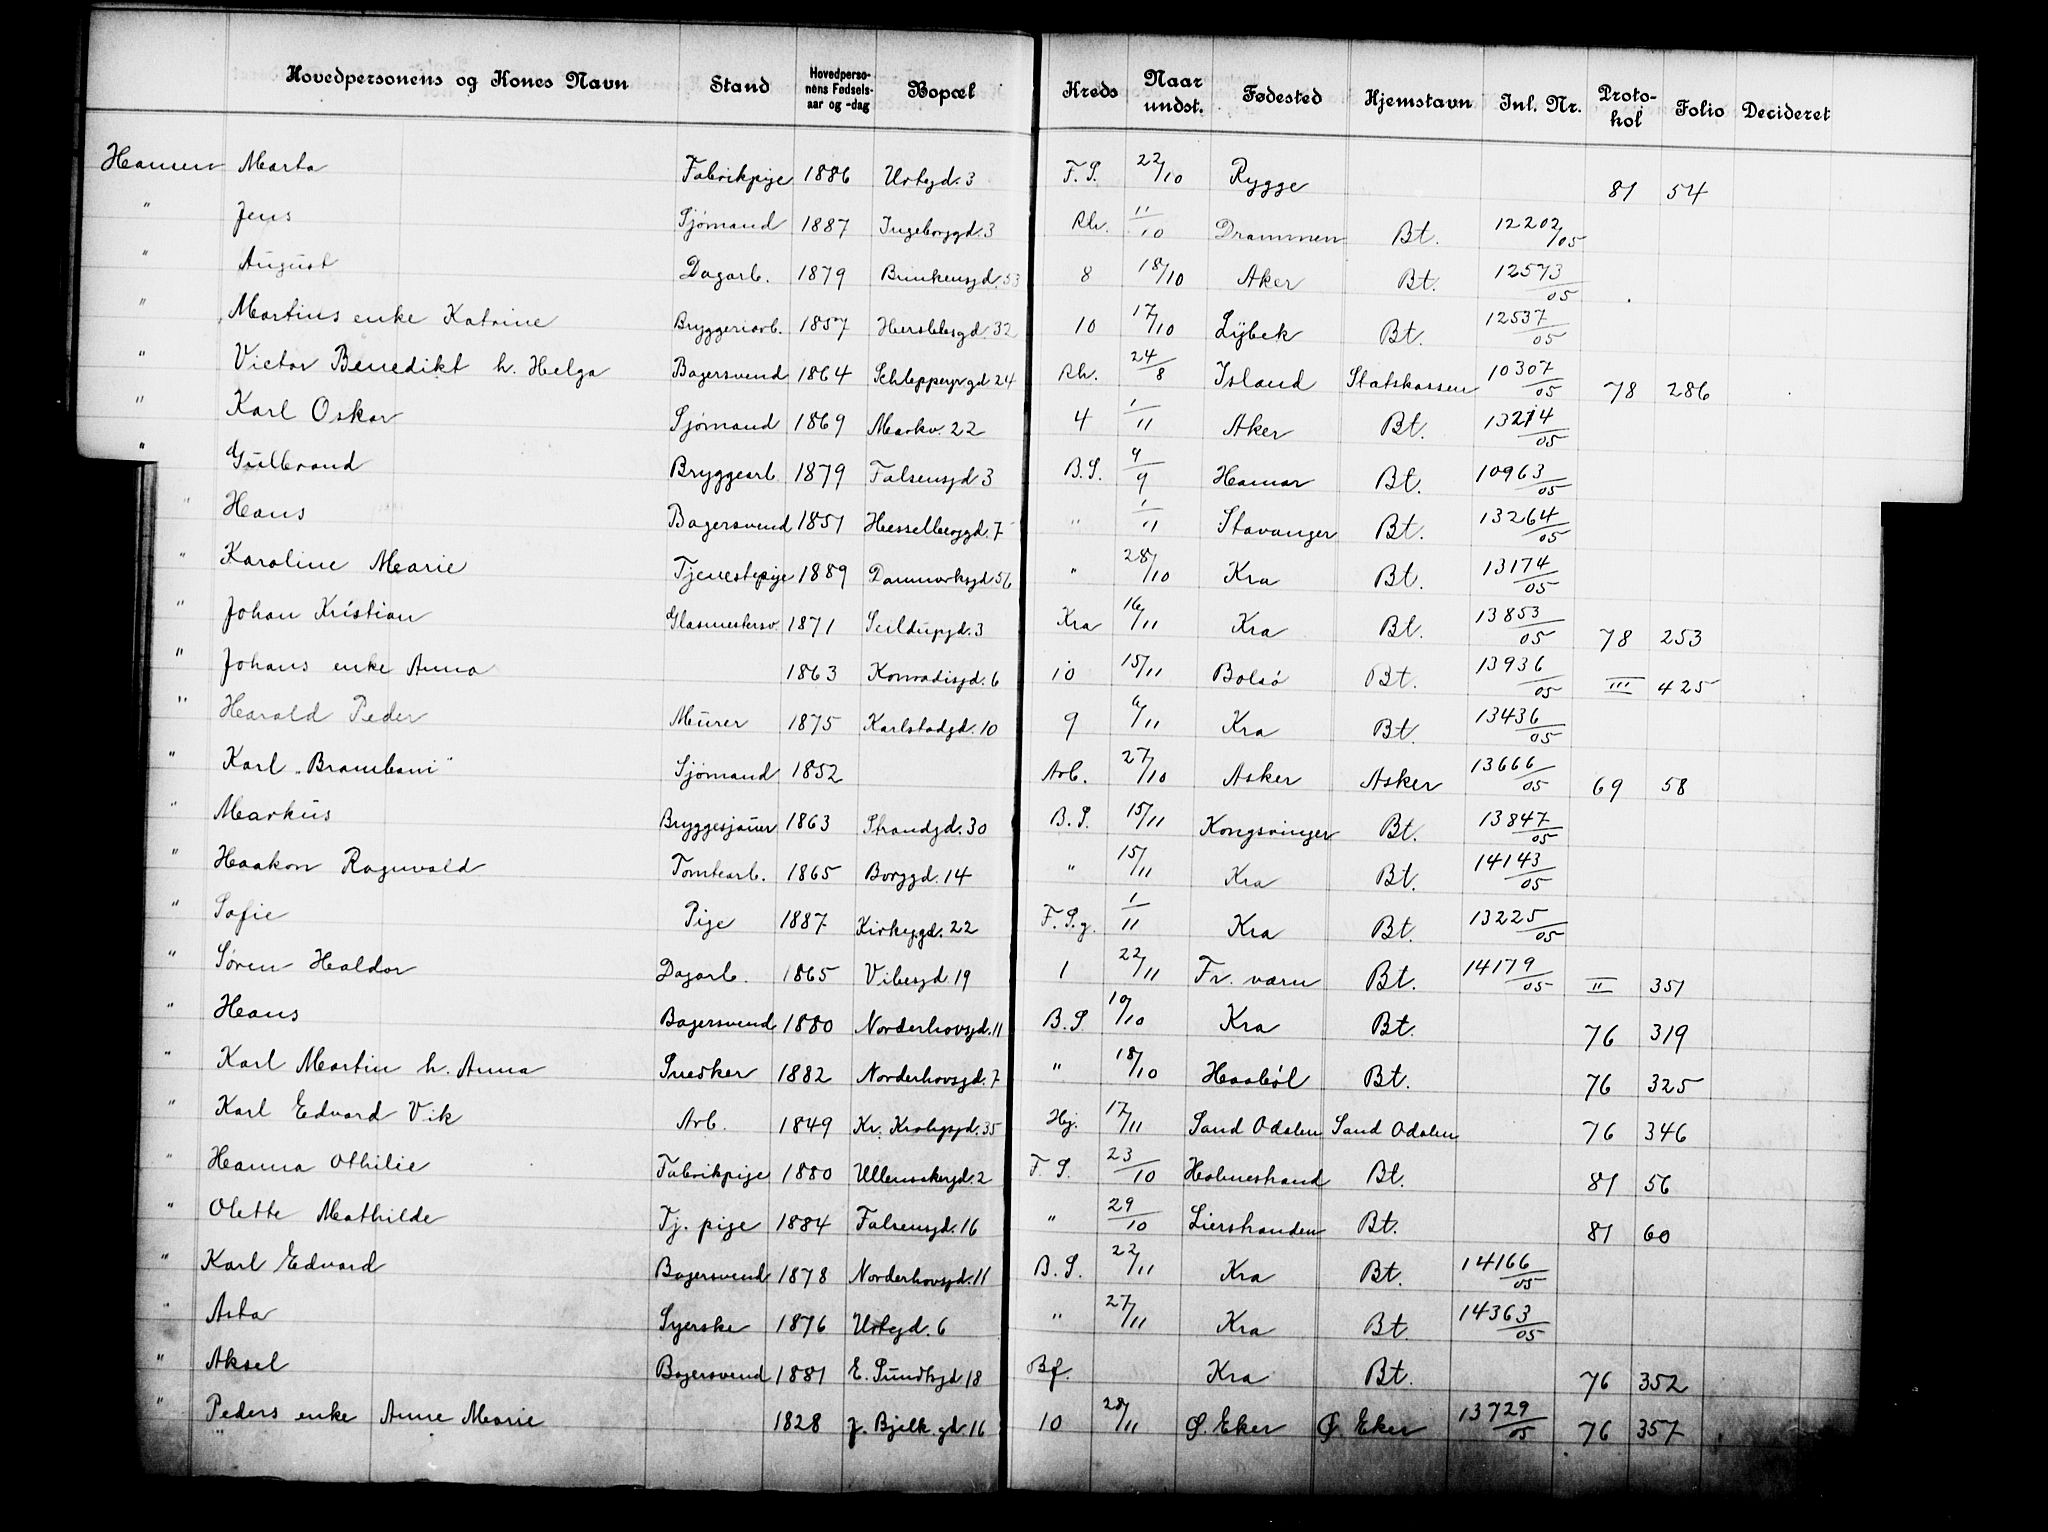 Hovedpersonens og Kones Navn Stand Hovedperso-nens Fødsels-aar og -dag Bopæl Kreds Naar undst. Fødested Hjemstavn Inl. Nr. Proto-kol Folio Decideret
Hansen Marta Fabrikpige 1886 Urtegd. 3 F. S. 22/10 Rygge 81 54
" Jens Sjømand 1887 Ingeborggd. 3 Rh. 11/10 Drammen Bt. 12202/05
" August Dagarb. 1879 Brinkensgd. 53 8 18/10 Aker Bt. 12573/05
" Martins enke Katrine Bryggeriarb. 1857 Herslebsgd. 32 10 17/10 Lybek Bt. 12537/05
" Victor Benedikt h. Helga Bagersvend 1864 Schleppegr.gd 24 Rh. 24/8 Island Statskassen 10307/05 78 286
" Karl Oskar Sjømand 1869 Markv. 22 4 1/11 Aker Bt. 13214/05
" Gulbrand Bryggearb. 1879 Falsensgd 3 B. S. 9/9 Hamar Bt. 10963/05
" Hans Bagersvend 1851 Hesselberggd. 7 " 1/11 Stavanger Bt. 13264/05
" Karoline Marie Tjenestepige 1889 Danmarksgd 56 " 28/10 Kra Bt. 13174/05
" Johan Kristian Glasmestersv. 1871 Seildugsgd. 3 Kra 16/11 Kra Bt. 13853/05 78 253
" Johans enke Anna 1863 Konradisgd. 6 10 15/11 Bolsø Bt. 13936/05 III 425
" Harald Peder Murer 1875 Karlstadgd. 10 9 6/11 Kra Bt. 13436/05
" Karl "Brambani" Sjømand 1852 Arb. 27/10 Asker Asker 13666/05 69 58
" Markus Bryggesjauer 1863 Strandgd. 30 B. S. 15/11 Kongsvinger Bt. 13847/05
" Haakon Ragnvald Tomtearb. 1865 Borggd. 14 " 15/11 Kra Bt. 14143/05
" Sofie Pige 1887 Kirkegd. 22 F. S. g. 1/11 Kra Bt. 13225/05
" Søren Haldor Dagarb. 1865 Vibesgd 19 1 22/11 Fr. værn Bt. 14179/05 II 351
" Hans Bagersvend 1880 Norderhovsgd. 11 B. S. 19/10 Kra Bt. 76 319
" Karl Martin h. Anna Snedker 1882 Norderhovsgd. 7 " 18/10 Haabøl Bt. 76 325
" Karl Edvard Vik Arb. 1849 Kr. Krohgsgd. 35 Hj. 17/11 Sand Odalen Sand Odalen 76 346
" Hanna Othilie Fabrikpige 1880 Ullensakergd. 2 F. S. 23/10 Holmestrand Bt. 81 56
" Olette Mathilde Tj. pige 1884 Falsensgd. 16 " 29/10 Lierstranden Bt. 81 60
" Karl Edvard Bagersvend 1878 Norderhovsgd. 11 B. S. 22/11 Kra Bt. 14166/05
" Asta Syerske 1876 Urtegd. 6 " 27/11 Kra Bt. 14363/05
" Aksel Bagersvend 1881 E. Sundtsgd 18 Bf. Kra Bt. 76 352
" Peders enke Anne Marie 1828 J. Bjelk. gd 16 10 28/11 Ø. Eker Ø. Eker 13729/05 76 357